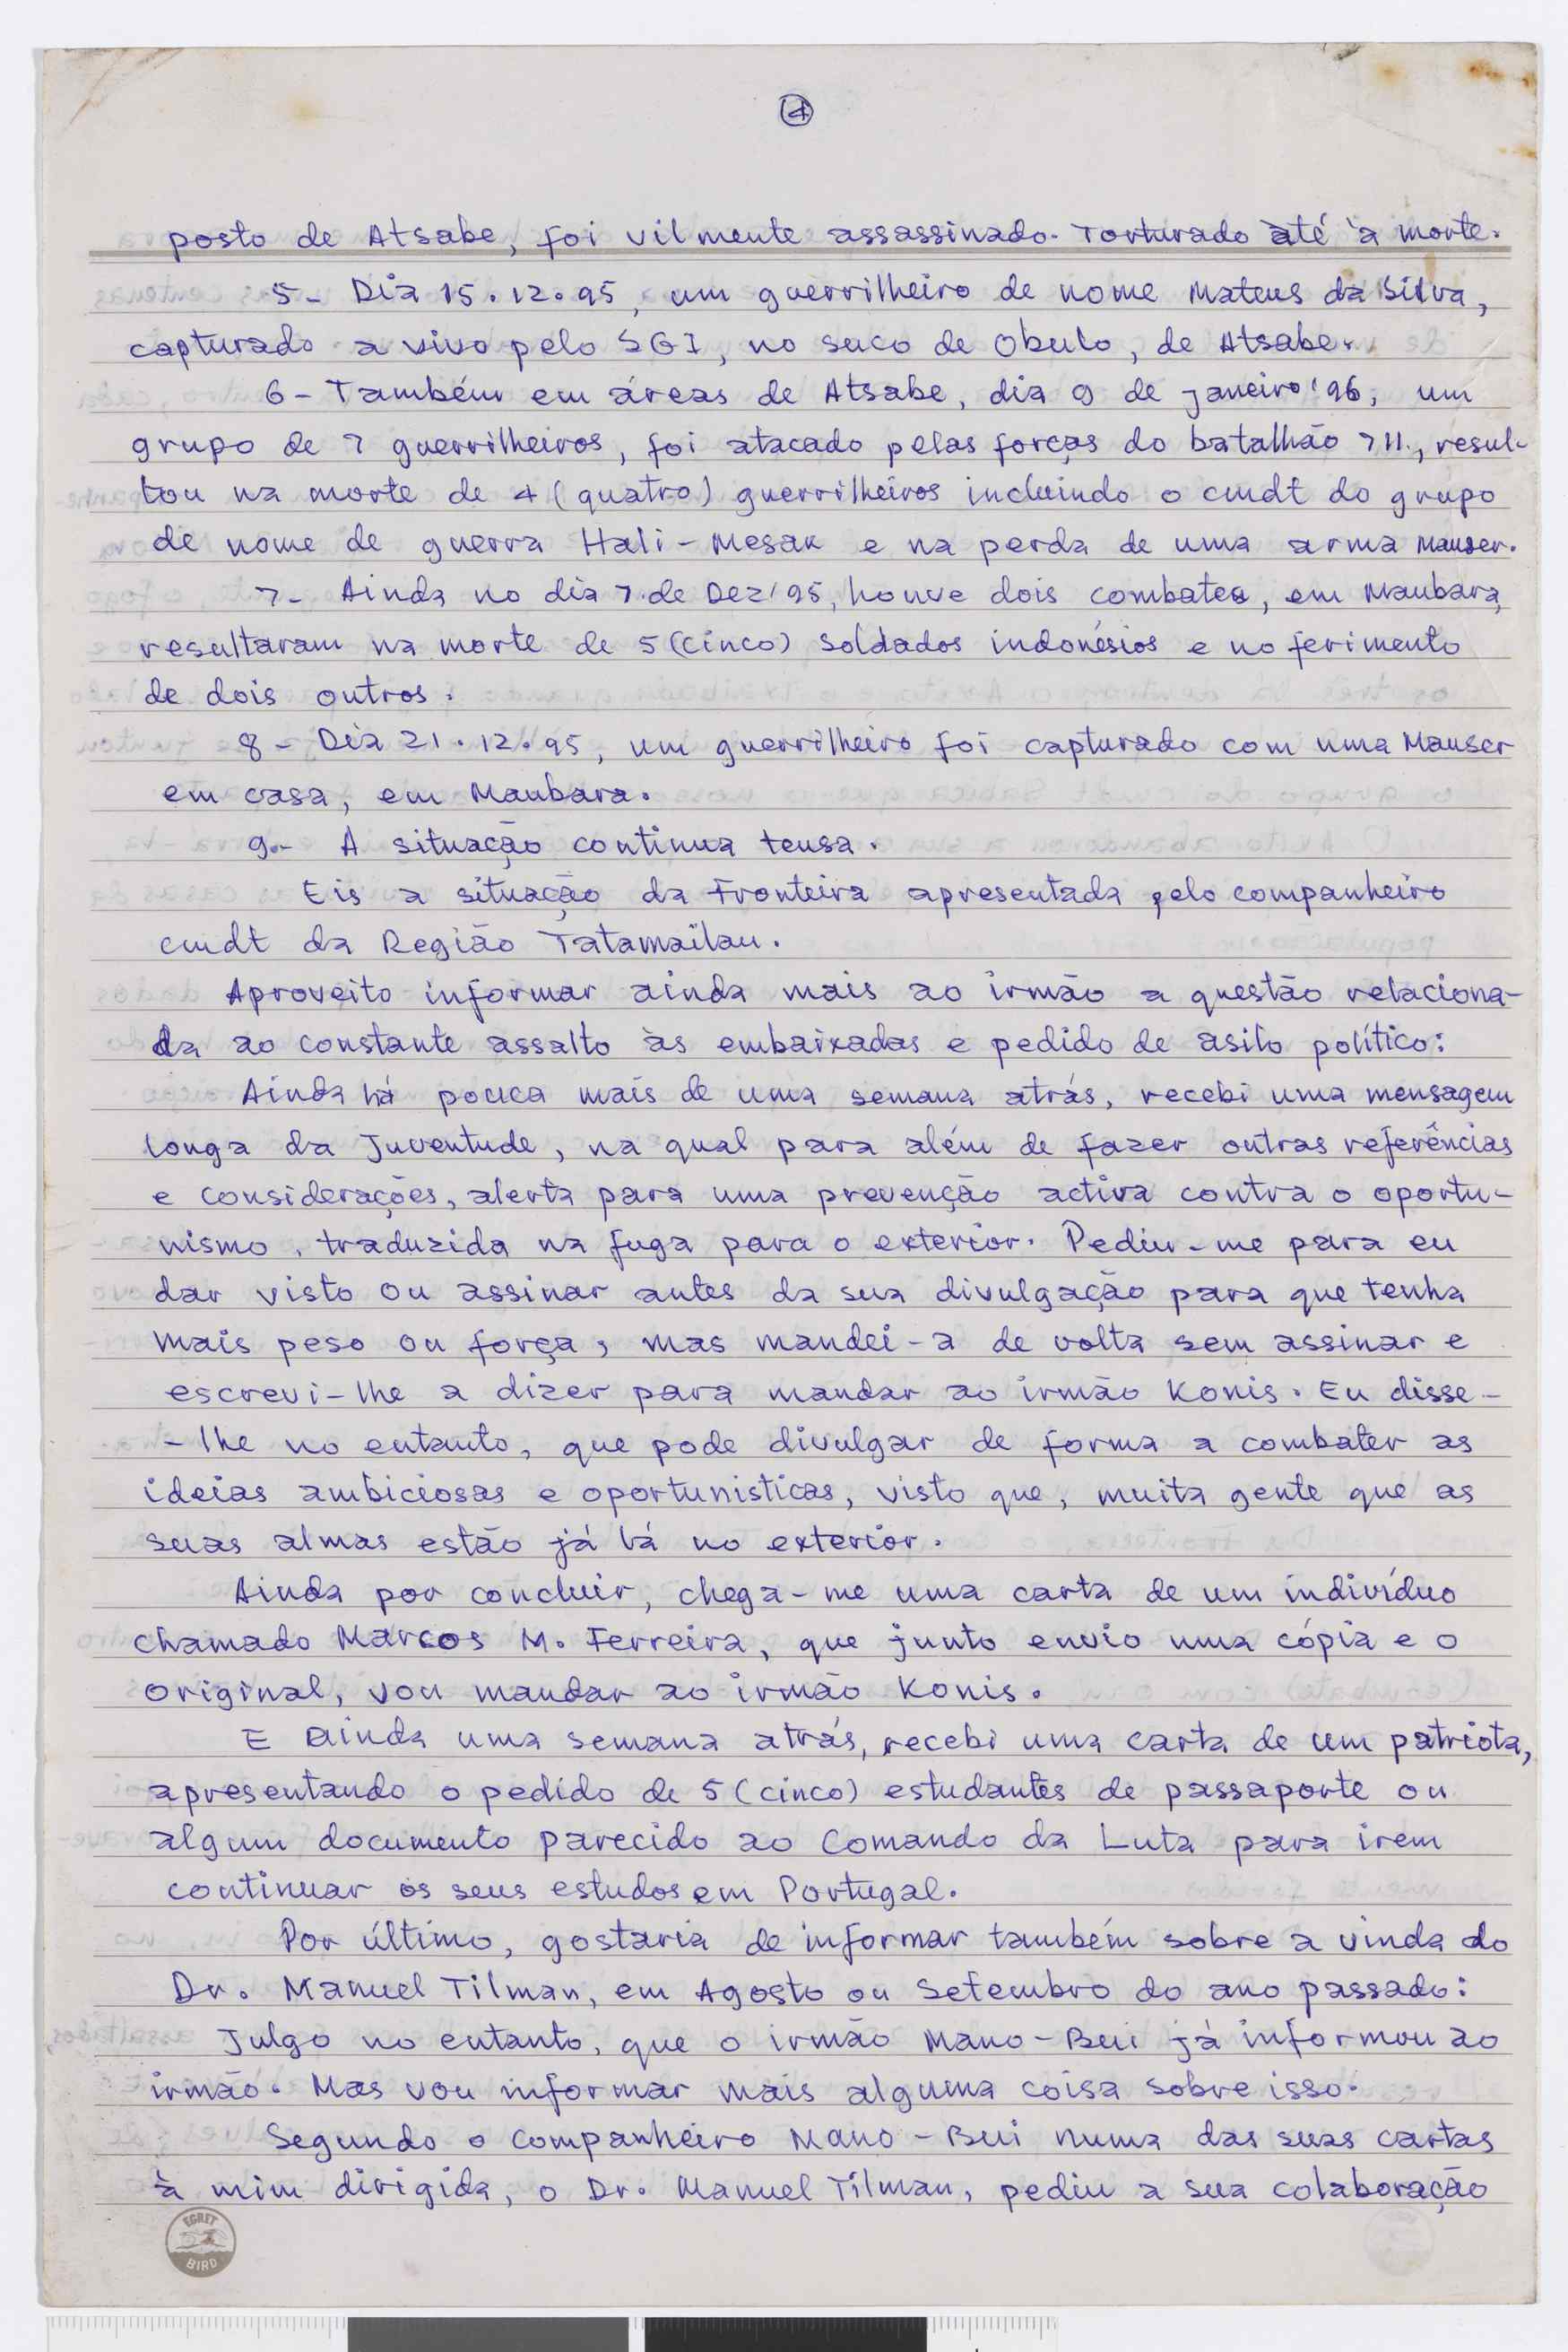 4
posto de Atsabe, foi vilmente assassinado. Torturado até à morte.
5- Dia 15.12.95, um guerrilheiro de nome Mateus da Silva,
capturado a vivo pelo SGI, no suco de Obulo, de Atsabe.
6- Também em áreas de Atsabe, dia 9 de janeiro '96, um
grupo de 7 guerrilheiros, foi atacado pelas forças do batalhão 711., resul-
tou na morte de 4 (quatro) guerrilheiros incluindo o cmdt do grupo
de nome de guerra Hali-Mesak e na perda de uma arma Mauser.
7- Ainda no dia 7.de Dez'95, houve dois combates, em Maubara,
resultaram na morte de 5 (cinco) soldados indonésios e no ferimento
de dois outros.
8- Dia 21.12.95, um guerrilheiro foi capturado com uma Mauser
em casa, em Maubara.
9.- A situação continua tensa.
Eis a situação da Fronteira apresentada pelo companheiro
cmdt da Região Tatamailau.
Aproveito informar ainda mais ao irmão a questão relaciona-
da ao constante assalto às embaixadas e pedido de asilo político:
Ainda há pouca mais de uma semana atrás, recebi uma mensagem
longa da Juventude, na qual para além de fazer outras referências
e considerações, alerta para uma prevenção activa contra o oportu-
nismo, traduzida na fuga para o exterior. Pediu-me para eu
dar visto ou assinar antes da sua divulgação para que tenha
mais peso ou força, mas mandei-a de volta sem assinar e
escrevi-lhe a dizer para mandar ao irmão Konis. Eu disse-
-lhe no entanto, que pode divulgar de forma a combater as
ideias ambiciosas e oportunisticas, visto que, muita gente que as
suas almas estão já lá no exterior.
Ainda por concluir, chega-me uma carta de um indivíduo
chamado Marcos M. Ferreira, que junto envio uma cópia e o
original, vou mandar ao irmão Konis.
E ainda uma semana atrás, recebi uma carta de um patriota,
apresentando o pedido de 5 (cinco) estudantes de passaporte ou
algum documento parecido ao Comando da Luta para irem
continuar os seus estudos em Portugal.
Por último, gostaria de informar também sobre a vinda do
Dr. Manuel Tilman, em Agosto ou Setembro do ano passado:
Julgo no entanto, que o irmão Mano-Bui já informou ao
irmão. Mas vou informar mais alguma coisa sobre isso.
Segundo o companheiro Mano-Bui numa das suas cartas
à mim dirigida, o Dr. Manuel Tilman, pediu a sua colaboração
EGRET
BIRD